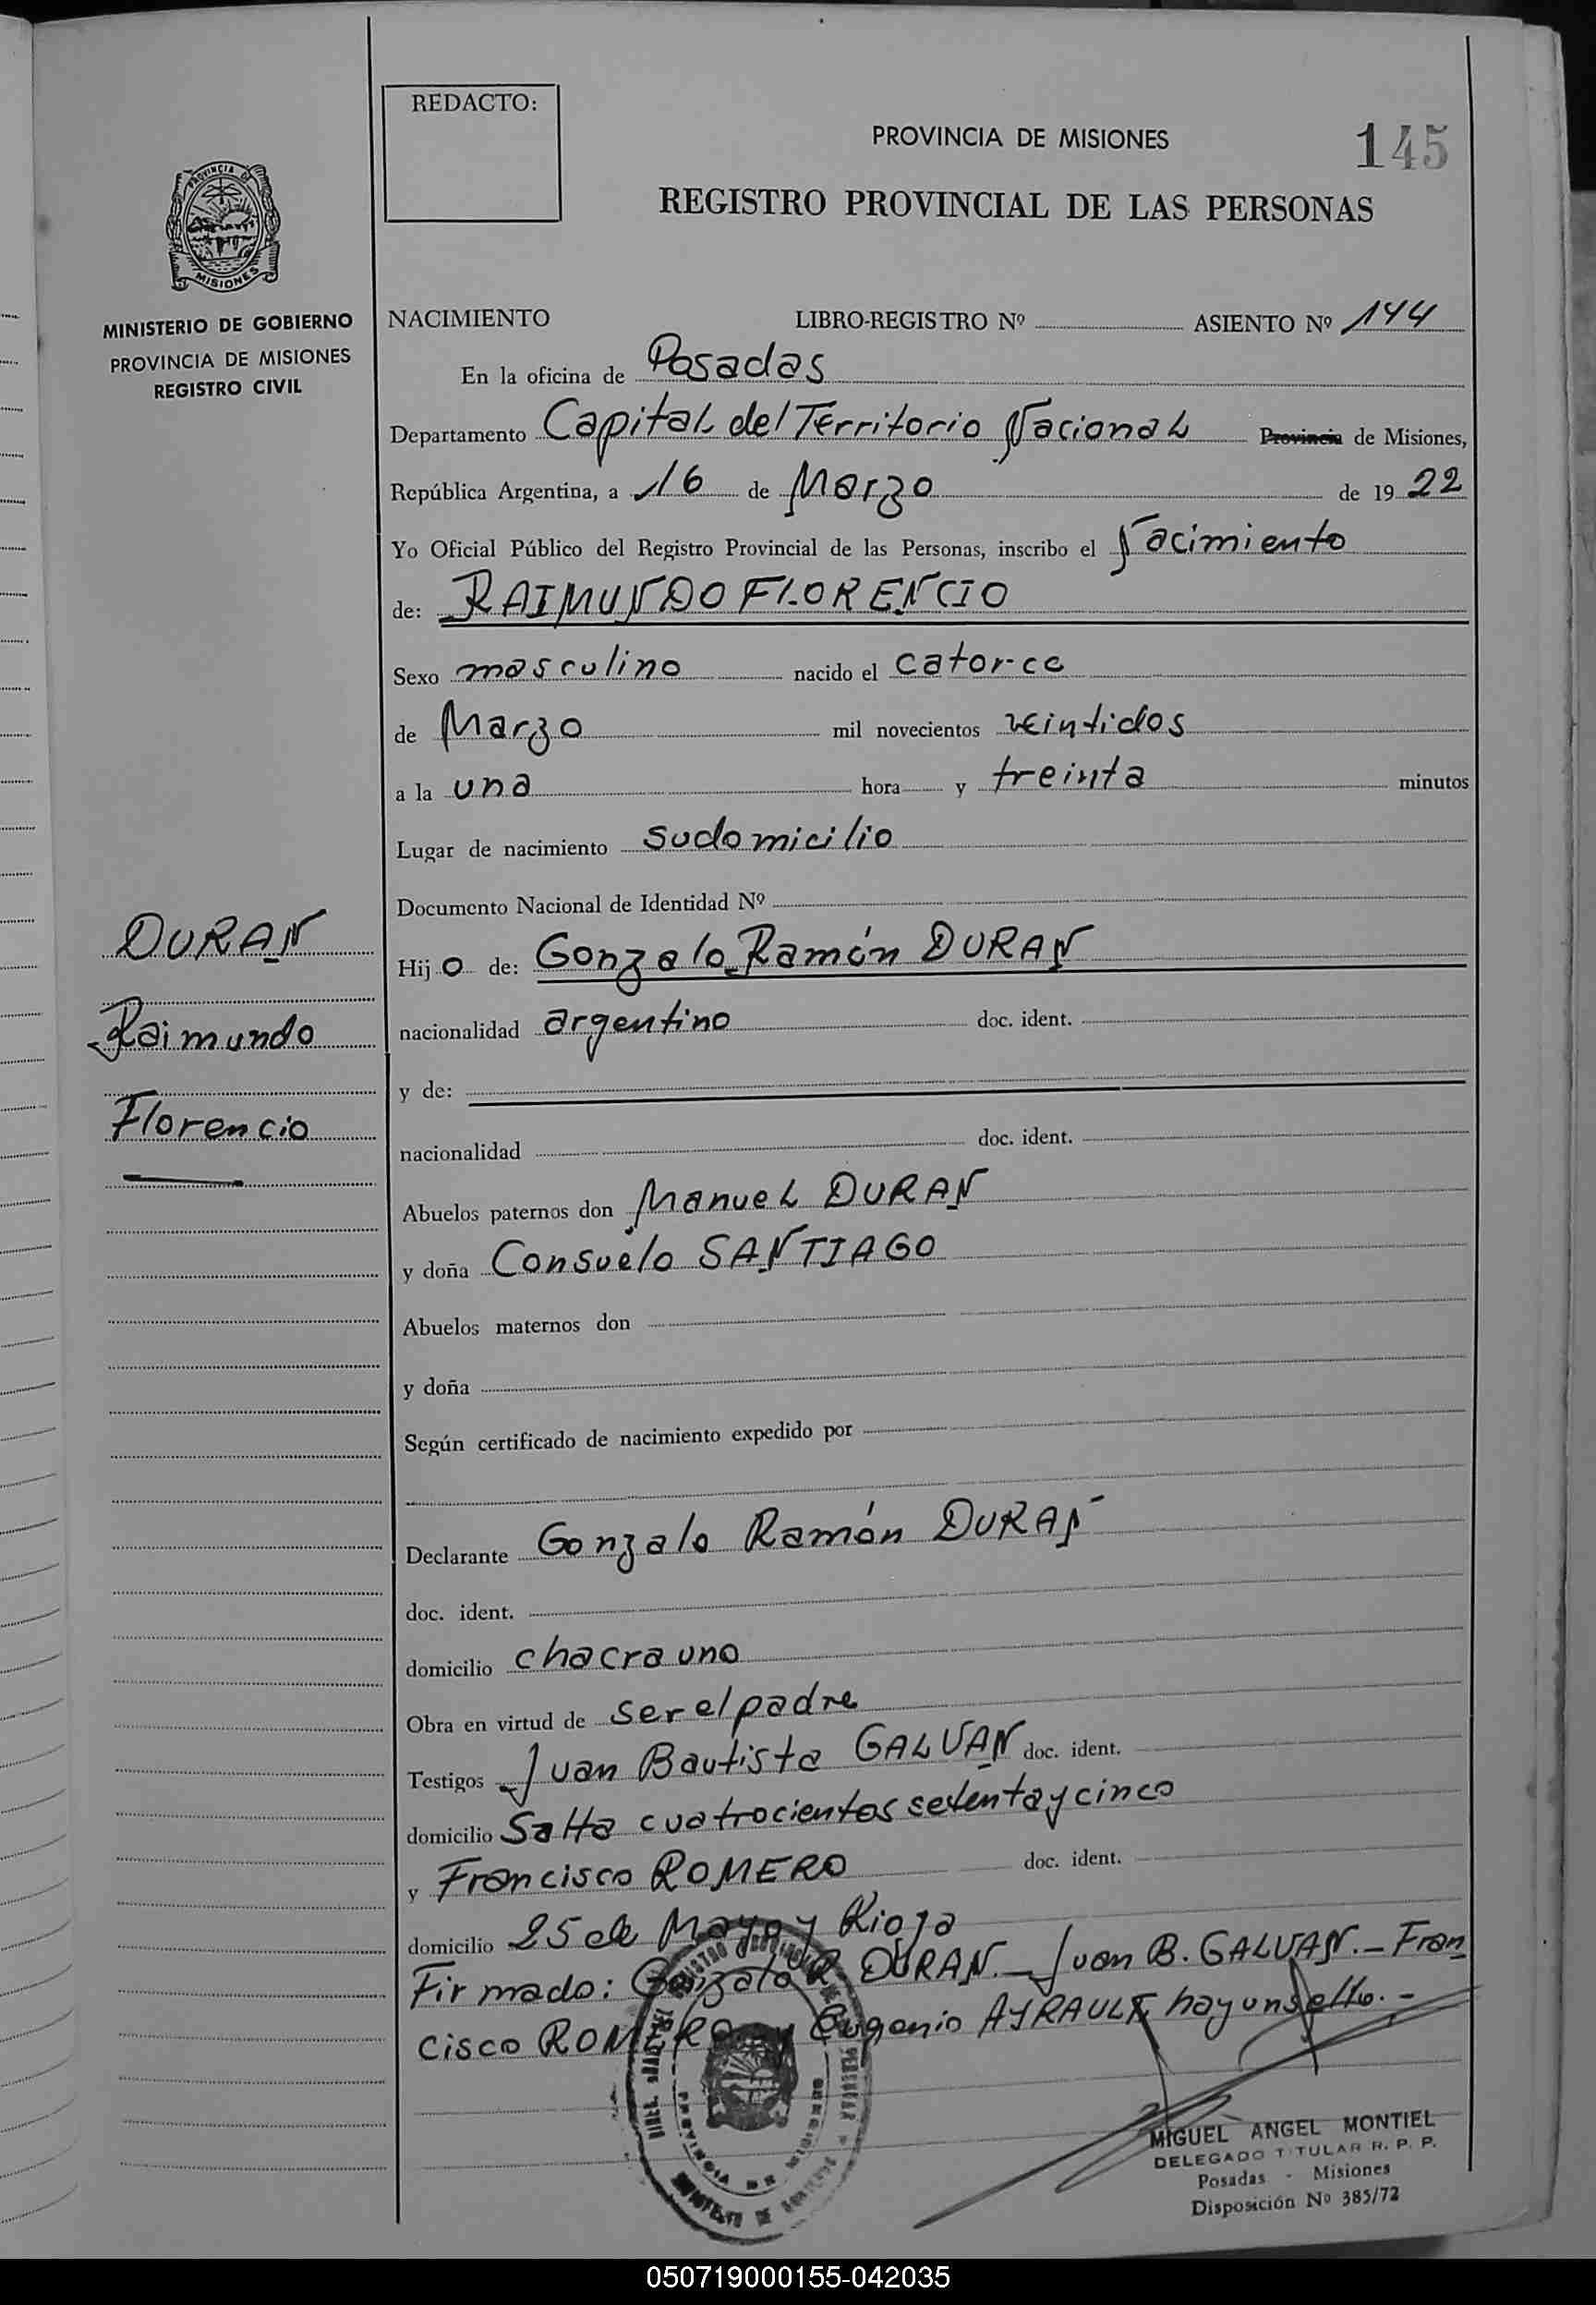 REDACTO:
PROVINCIA DE MISIONES
145
REGISTRO PROVINCIAL DE LAS PERSONAS
PROVINCIA DE
MISIONES
MINISTERIO DE GOBIERNO
PROVINCIA DE MISIONES
REGISTRO CIVIL
NACIMIENTO LIBRO-REGISTRO Nº ASIENTO Nº 144
En la oficina de Posadas
Departamento Capital del Territorio Nacional Provincia de Misiones,
República Argentina, a 16 de Marzo de 1922
Yo Oficial Público del Registro Provincial de las Personas, inscribo el Nacimiento
de: RAIMUNDO FLORENCIO
Sexo masculino nacido el catorce
de Marzo mil novecientos veintidos
a la una hora y treinta minutos
Lugar de nacimiento su domicilio
Documento Nacional de Identidad Nº
DURAN
Raimundo
Florencio
Hijo de: Gonzalo Ramón DURAN
nacionalidad argentino doc. ident.
y de:
nacionalidad doc. ident.
Abuelos paternos don Manuel DURAN
y doña Consuelo SANTIAGO
Abuelos maternos don
y doña
Según certificado de nacimiento expedido por
Declarante Gonzalo Ramón DURAN
doc. ident.
domicilio chacra uno
Obra en virtud de ser el padre
Testigos Juan Bautista GALVAN doc. ident.
domicilio Salta cuatrocientos setenta y cinco
y Francisco ROMERO doc. ident.
domicilio 25 de Mayo y Rioja
Firmado: Gonzalo R. DURAN.- Juan B. GALVAN.- Fran
cisco ROMERO Eugenio AYRAULT, hay un sello.-
MIGUEL ANGEL MONTIEL
DELEGADO TITULAR R. P. P.
Posadas - Misiones
Disposición Nº 385/72
050719000155-042035